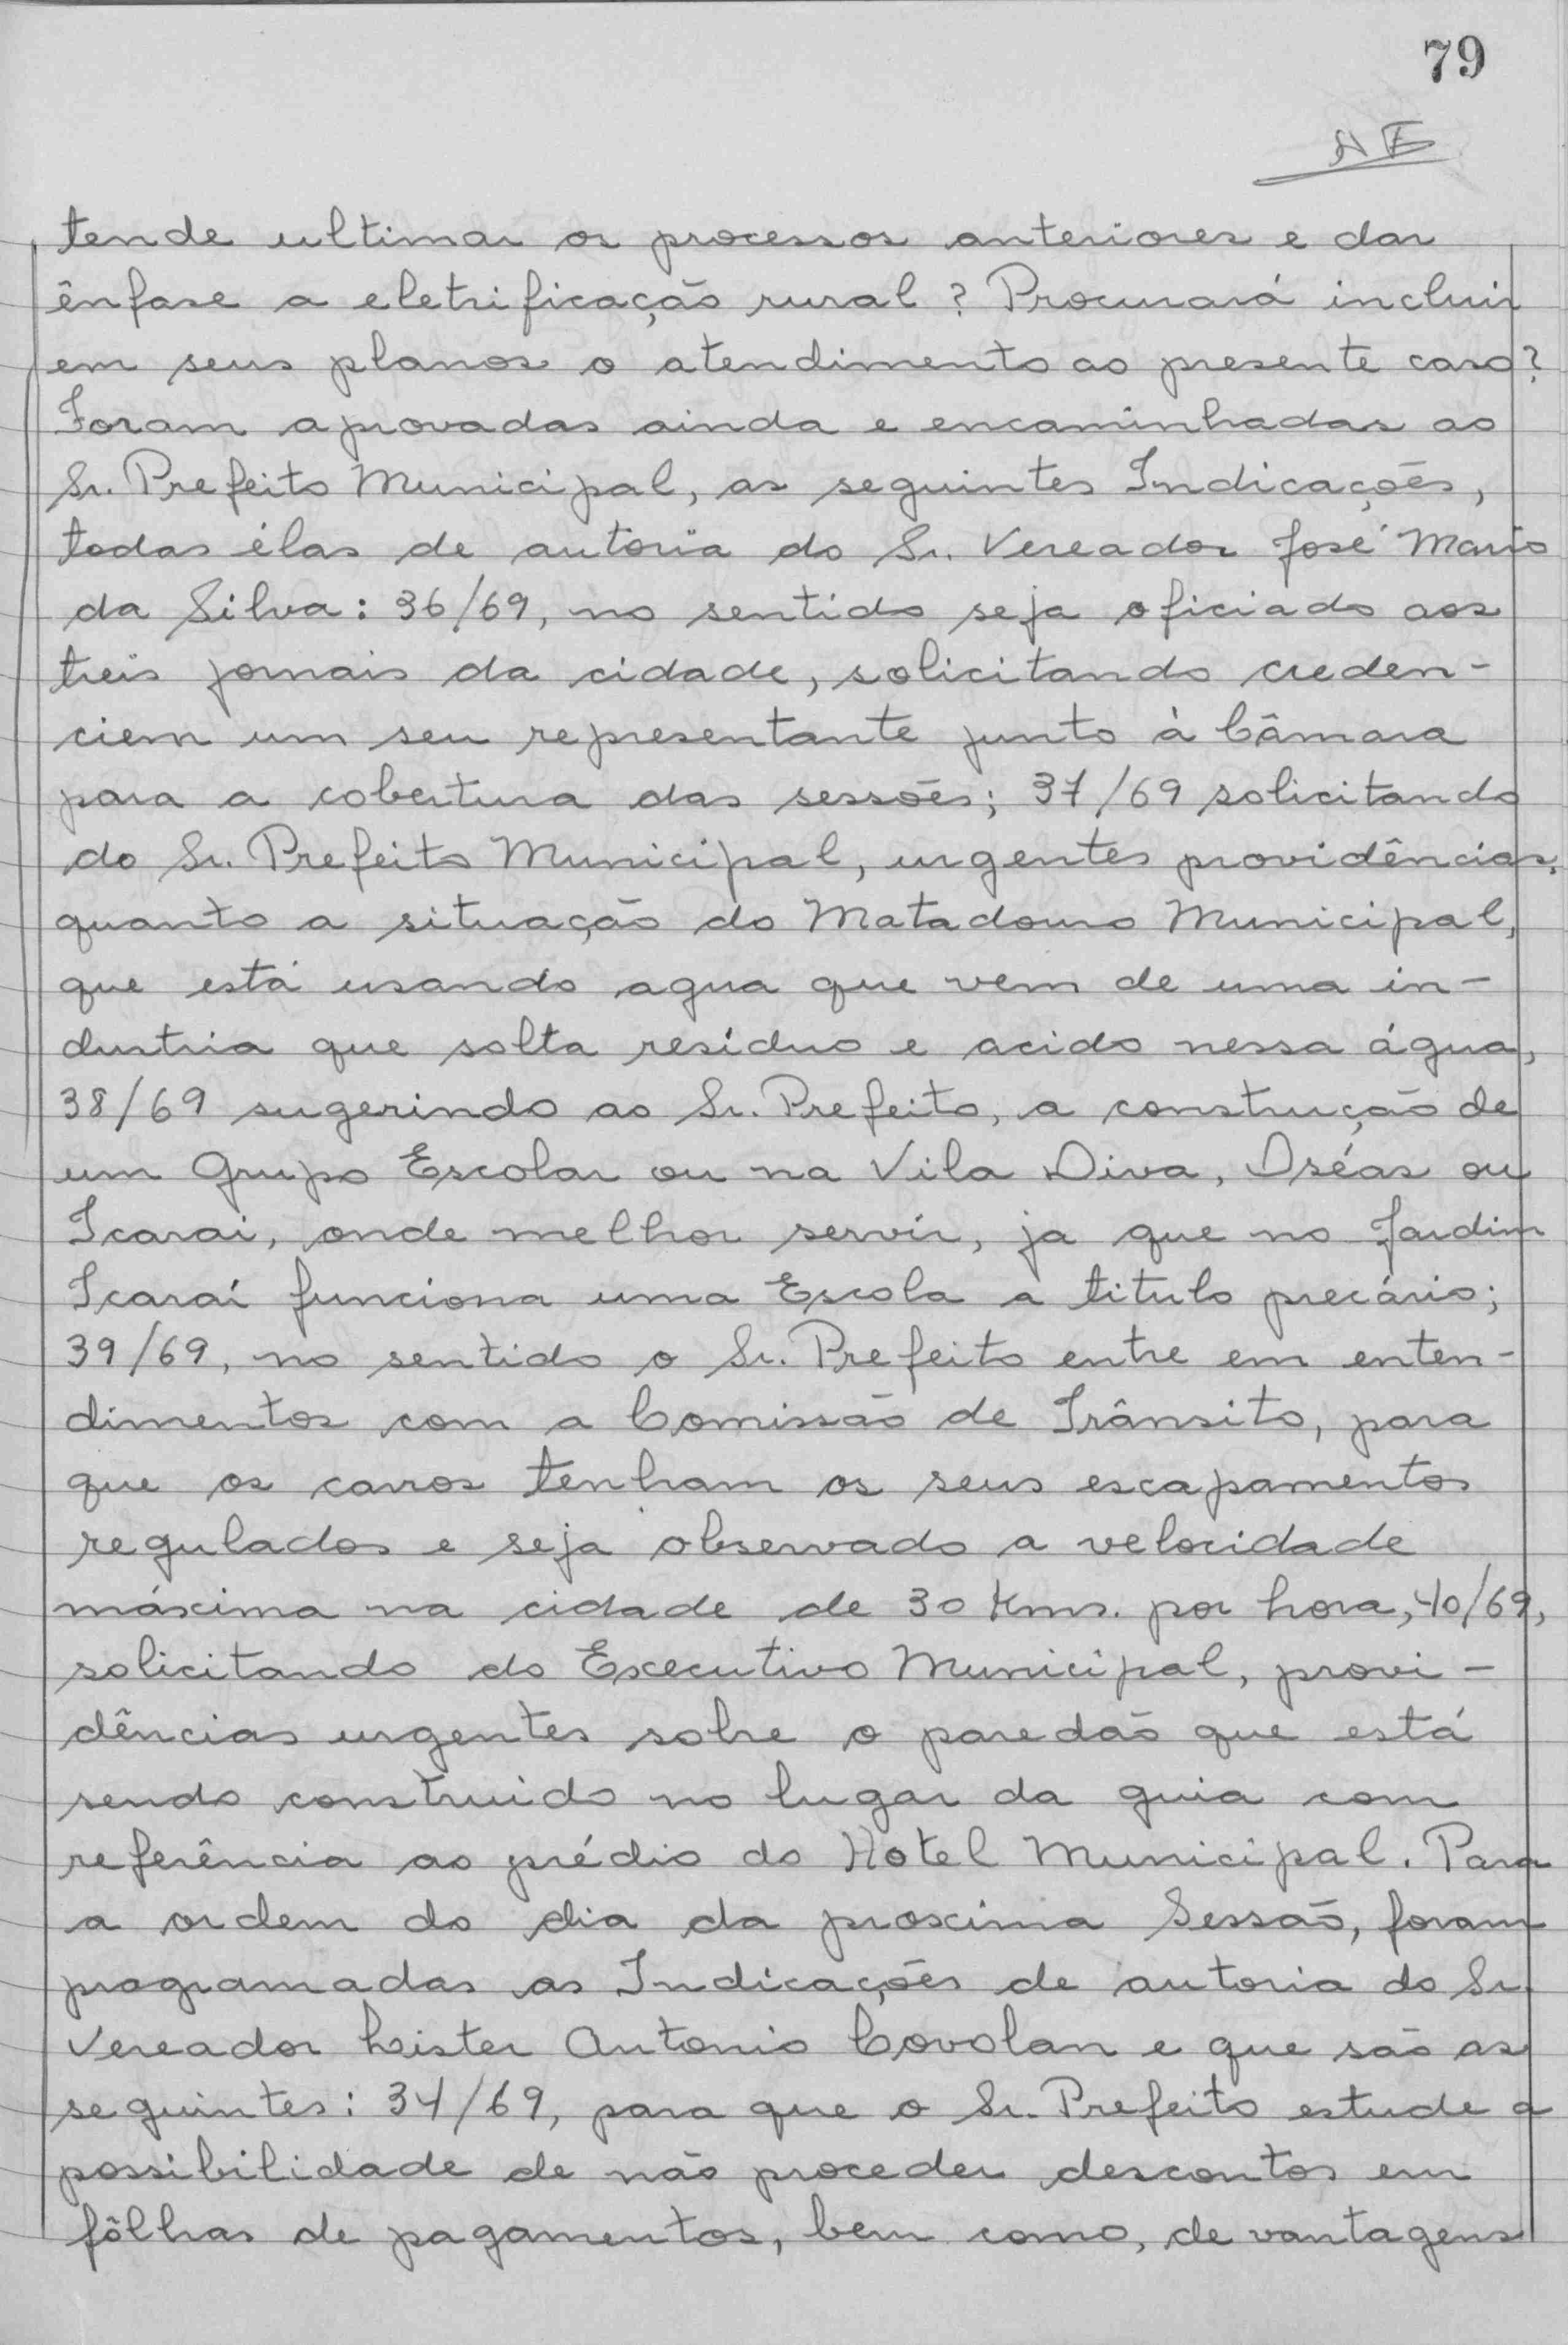 79
AF
tende ultimar os processos anteriores e dar
ênfase a eletrificação rural? Procurará incluir
em seus planos o atendimento ao presente caso?
Foram aprovadas ainda e encaminhadas ao
Sr. Prefeito Municipal, as seguintes Indicações,
todas élas de autoria do Sr. Vereador José Mario
da Silva: 36/69, no sentido seja oficiado aos
treis jornais da cidade, solicitando creden-
ciem um seu representante junto à Câmara
para a cobertura das sessões; 37/69 solicitando
do Sr. Prefeito Municipal, urgentes providências,
quanto a situação do Matadouro Municipal,
que está usando agua que vem de uma in-
dustria que solta resíduo e acido nessa água,
38/69 sugerindo ao Sr. Prefeito, a construção de
um Grupo Escolar ou na Vila Diva, Oséas ou
Icarai, onde melhor servir, ja que no Jardim
Icaraí funciona uma Escola a titulo precário;
39/69, no sentido o Sr. Prefeito entre em enten-
dimentos com a Comissão de Trânsito, para
que os carros tenham os seus escapamentos
regulados e seja observado a velocidade
máxima na cidade de 30 Kms. por hora, 40/69,
solicitando do Executivo Municipal, provi-
dências urgentes sobre o paredão que está
sendo construido no lugar da guia com
referência ao prédio do Hotel Municipal. Para
a ordem do dia da proxima Sessão, foram
programadas as Indicações de autoria do Sr.
Vereador Lister Antonio Covolan e que são as
seguintes: 34/69, para que o Sr. Prefeito estude a
possibilidade de não proceder descontos em
fôlhas de pagamentos, bem como, de vantagens